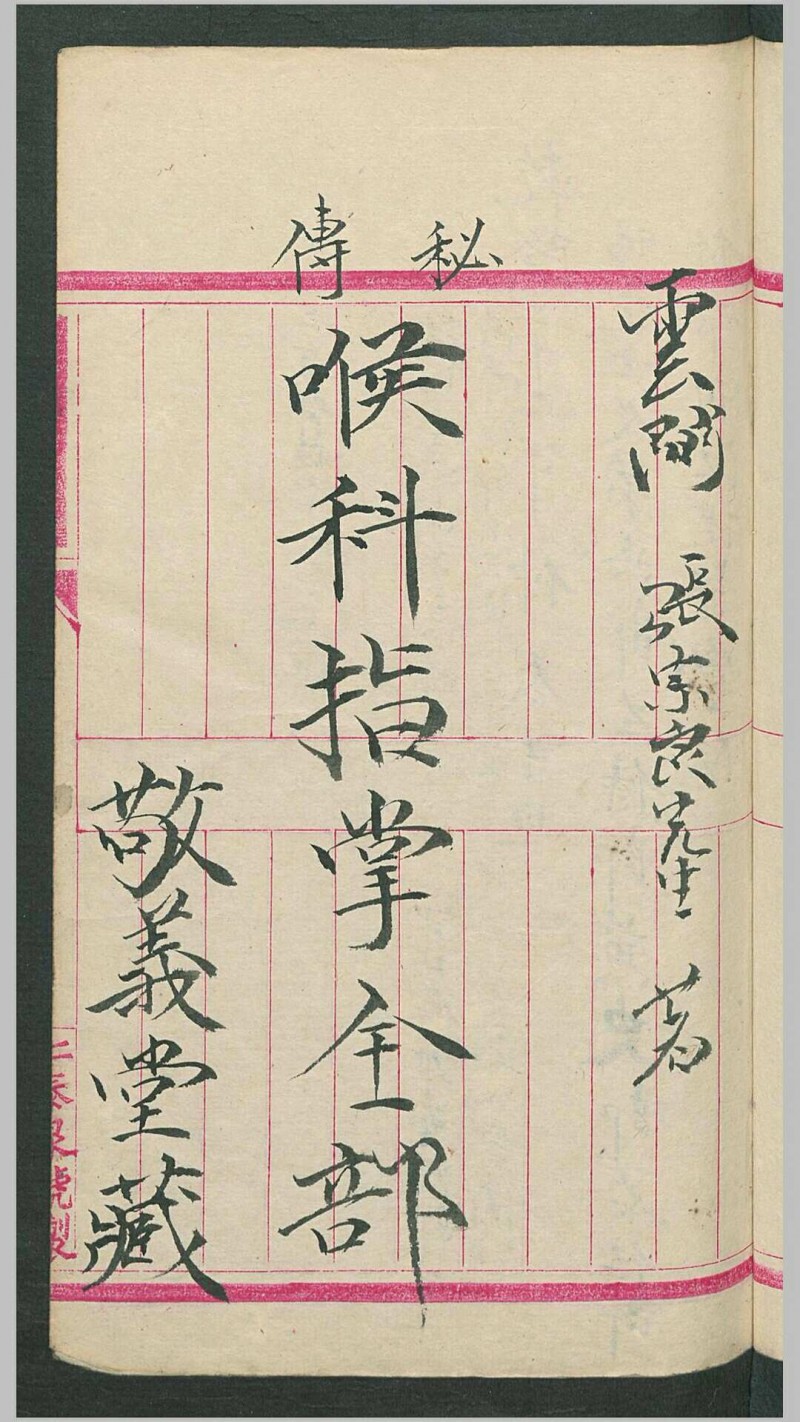 雲間 張宗良先生 著
秘傳
喉科指掌全部
敬義堂藏